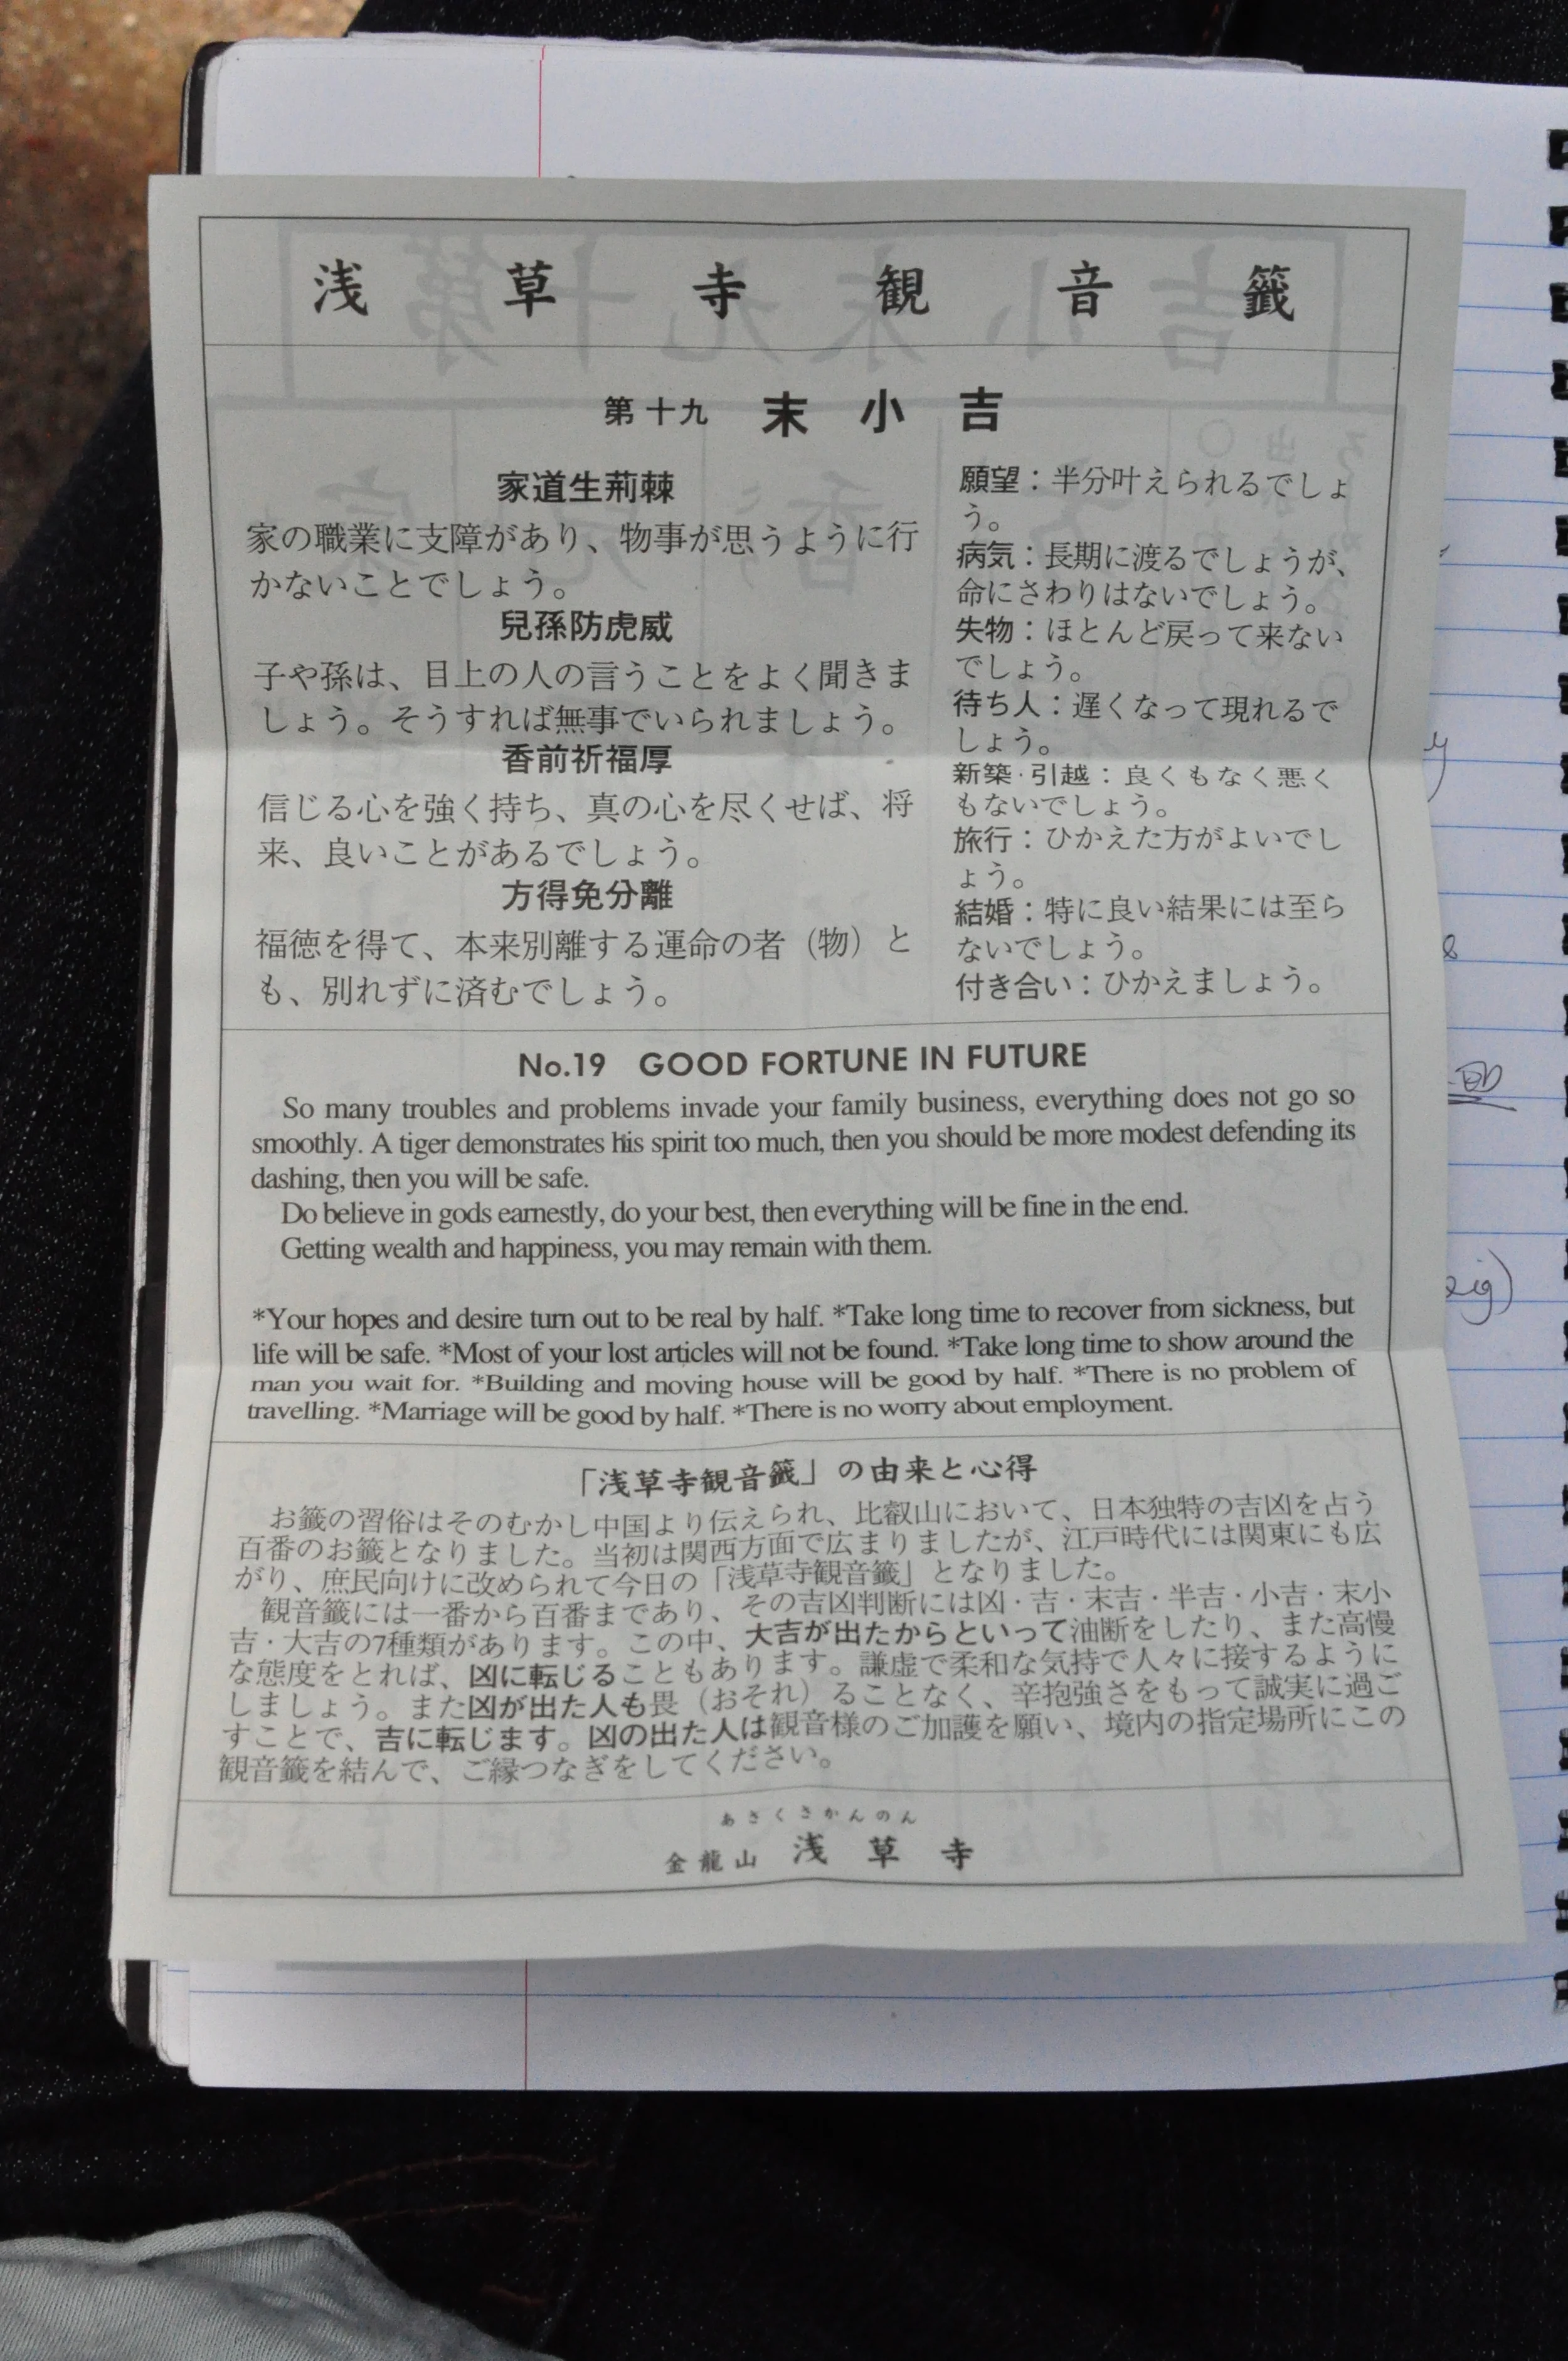 浅草寺観音籤
第十九 末小吉
家道生荊棘
家の職業に支障があり、物事が思うように行
かないことでしょう。
兒孫防虎威
子や孫は、目上の人の言うことをよく聞きま
しょう。そうすれば無事でいられましょう。
香前祈福厚
信じる心を強く持ち、真の心を尽くせば、将
来、良いことがあるでしょう。
方得免分離
福徳を得て、本来別離する運命の者（物）と
も、別れずに済むでしょう。
願望：半分叶えられるでしょ
う。
病気：長期に渡るでしょうが、
命にさわりはないでしょう。
失物：ほとんど戻って来ない
でしょう。
待ち人：遅くなって現れるで
しょう。
新築・引越：良くもなく悪く
もないでしょう。
旅行：ひかえた方がよいでし
ょう。
結婚：特に良い結果には至ら
ないでしょう。
付き合い：ひかえましょう。
No.19 GOOD FORTUNE IN FUTURE
So many troubles and problems invade your family business, everything does not go so
smoothly. A tiger demonstrates his spirit too much, then you should be more modest defending its
dashing, then you will be safe.
Do believe in gods earnestly, do your best, then everything will be fine in the end.
Getting wealth and happiness, you may remain with them.
*Your hopes and desire turn out to be real by half. *Take long time to recover from sickness, but
life will be safe. *Most of your lost articles will not be found. *Take long time to show around the
man you wait for. *Building and moving house will be good by half. *There is no problem of
travelling. *Marriage will be good by half. *There is no worry about employment.
「浅草寺観音籤」の由来と心得
お籤の習俗はそのむかし中国より伝えられ、比叡山において、日本独特の吉凶を占う
百番のお籤となりました。当初は関西方面で広まりましたが、江戸時代には関東にも広
がり、庶民向けに改められて今日の「浅草寺観音籤」となりました。
観音籤には一番から百番まであり、その吉凶判断には凶・吉・末吉・半吉・小吉・末小
吉・大吉の7種類があります。この中、大吉が出たからといって油断をしたり、また高慢
な態度をとれば、凶に転じることもあります。謙虚で柔和な気持で人々に接するように
しましょう。また凶が出た人も畏（おそれ）ることなく、辛抱強さをもって誠実に過ご
すことで、吉に転じます。凶の出た人は観音様のご加護を願い、境内の指定場所にこの
観音籤を結んで、ご縁つなぎをしてください。
あさくさかんのん
金龍山 浅草寺